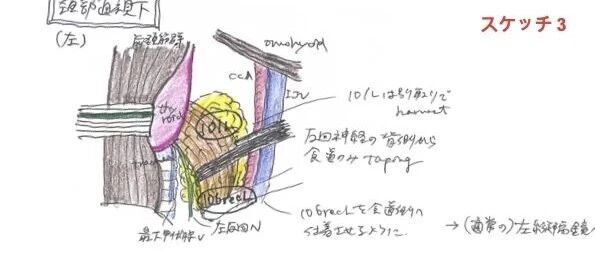 頸部直視下
スケッチ 3
(左)
前頸筋群
omohyoid
CCA
IJV
thyroid
101L
101Lは別取りで
harvest
反回神経の背側から
食道のみ taping
trachea
106recL
106recLを食道側へ
付着させるように
→(通常の)左縦隔鏡
最下甲状腺V
左反回N